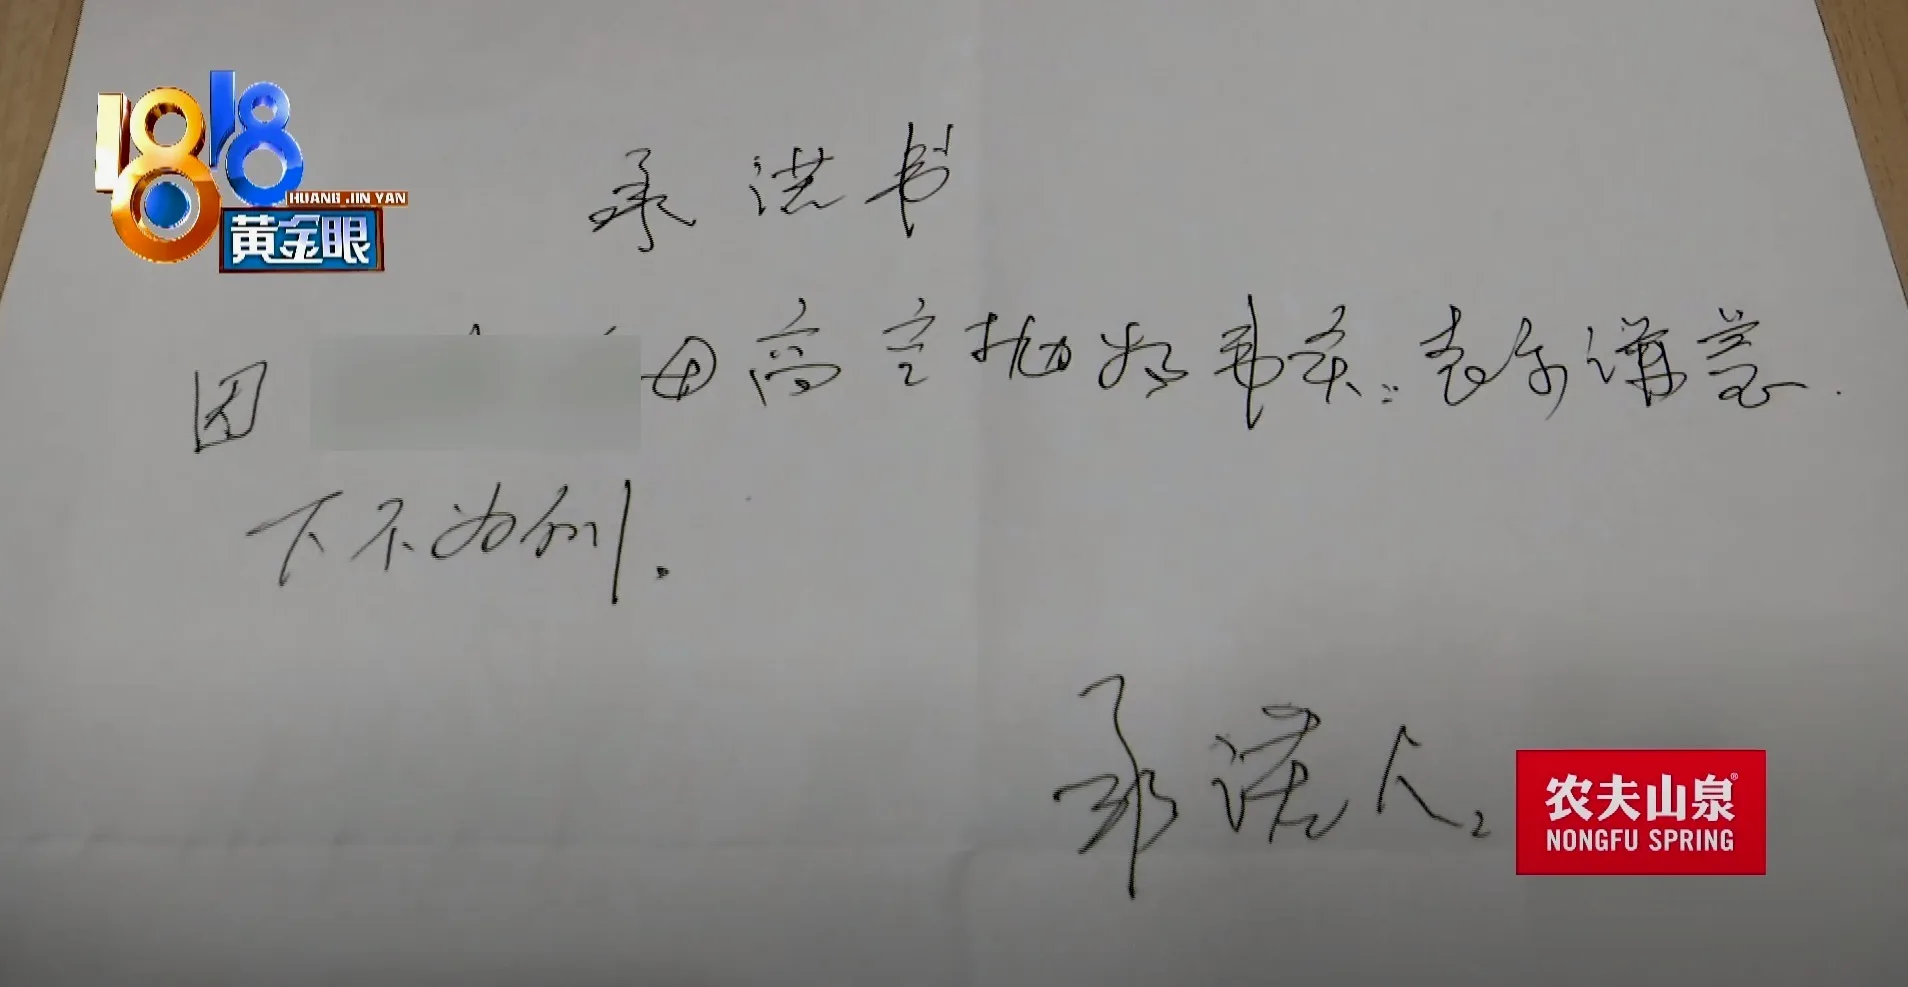 1818
HUANG JIN YAN
黄金眼
承诺书
因 高空抛物 表示谦意.
下不为例.
承诺人
农夫山泉®
NONGFU SPRING